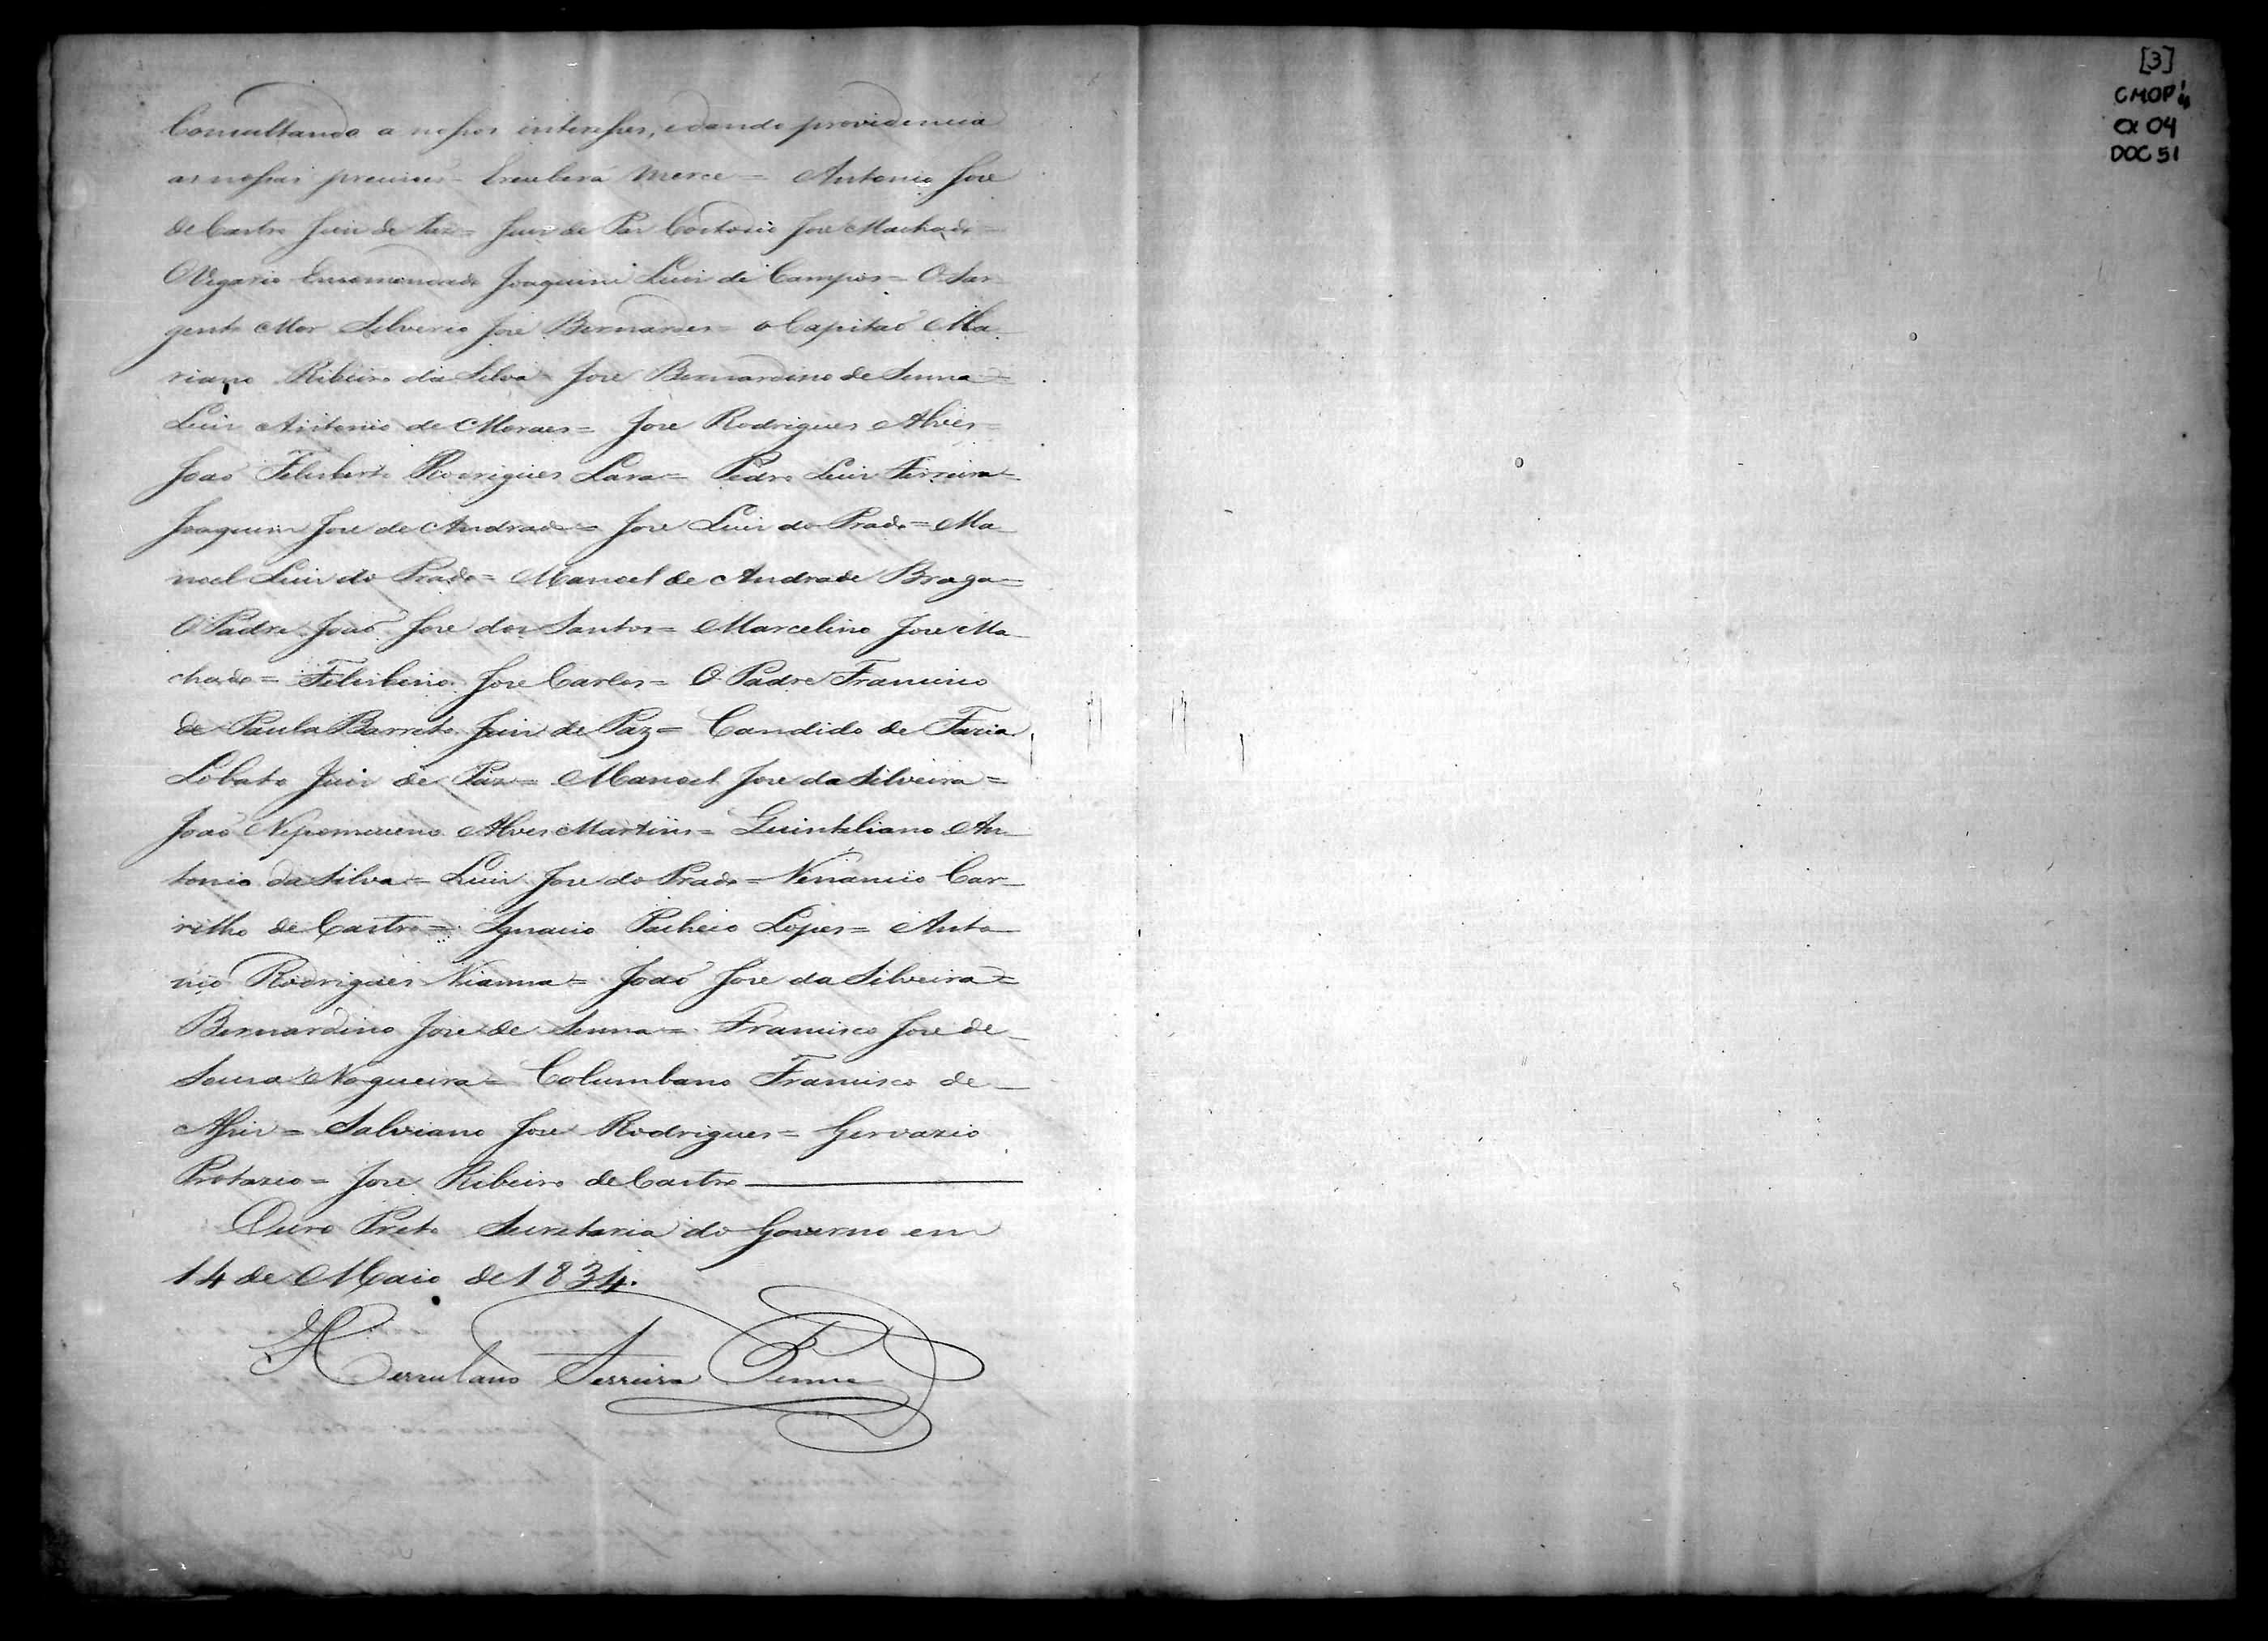 Consultando a nossos interesses, e dando providencia
as nossas precisões E recebera Merce = Antonio Jose
de Castro Juiz de Paz = Juiz de Paz Costodio Jose Machado =
O Vigario Encomendado Joaquim Luiz de Campos = O Sar
gento Mor Silverio Jose Bernardes = o Capitaõ Ma
riano Ribeiro da Silva = Jose Bernardino de Senna =
Luiz Antonio de Moraes = Jose Rodrigues Alves =
Joaõ Felisberto Rodrigues Lara = Pedro Luiz Ferreira =
Joaquim Jose de Andrade = Jose Luiz do Prado = Ma
noel Luiz do Prado = Manoel de Andrade Braga =
O Padre Joaõ Jose dos Santos = Marcelino Jose Ma
chado = Felisbino Jose Carlos = O Padre Francisco
de Paula Barreto Juiz de Paz = Candido de Faria
Lobato Juiz de Paz = Manoel Jose da Silveira =
Joaõ Nepomuceno Alves Martins = Quintiliano An
tonio da Silva = Luiz Jose do Prado = Venancio Car
rilho de Castro = Ignacio Pacheco Lopes = Anto
nio Rodrigues Vianna = Joaõ Jose da Silveira =
Bernardino Jose de Senna = Francisco Jose de
Souza Nogueira = Columbano Francisco de
Assis = Salviano Jose Rodrigues = Gervazio
Protazio = Jose Ribeiro de Castro
Ouro Preto Secretaria do Governo em
14 de Maio de 1834.
Herculano Ferreira Penna
[3]
CMOP
CX 04
DOC 51